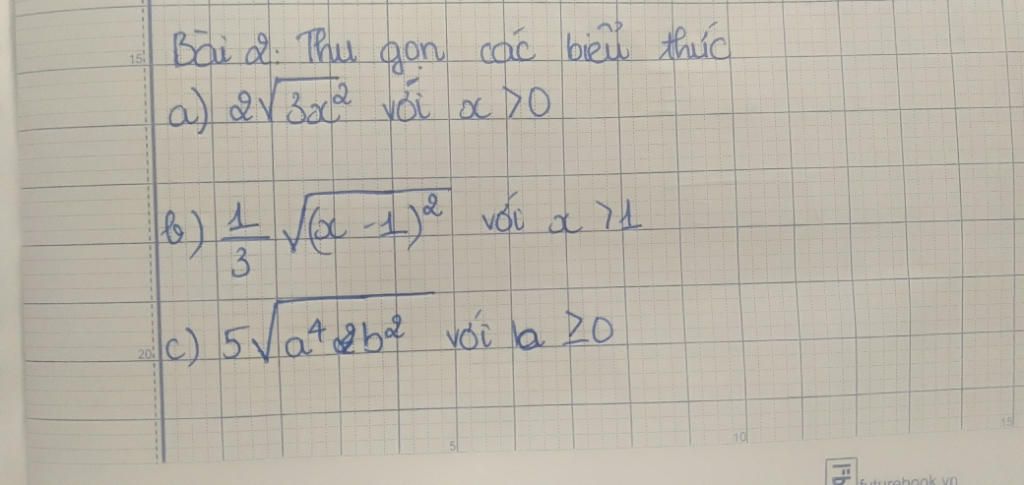 15
Bài 2: Thu gọn các biểu thức
a) 2√3x² với x > 0
b) 1/3 √(x - 1)² với x > 1
20 c) 5√a⁴2b² với b ≥ 0
5 10 15
futurebook.vn